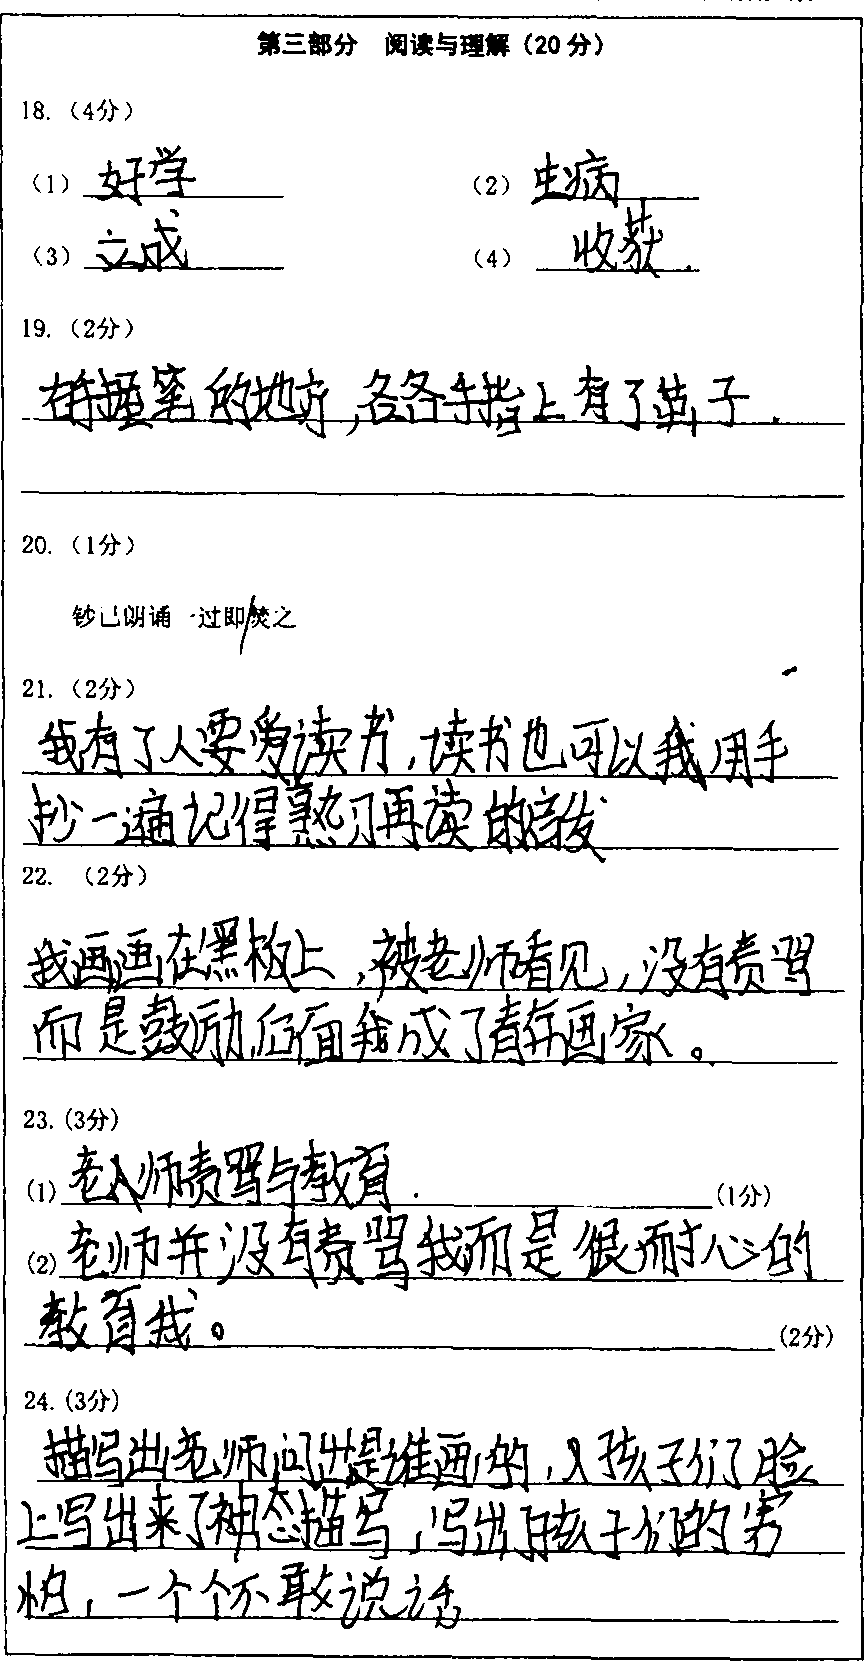 第三部分 阅读与理解（20分）
18.（4分）
（1）好学 （2）生病
（3）立成 （4）收获.
19.（2分）
在手握笔的地方,各各手指上有了茧子.
20.（1分）
钞已朗诵一过即/焚之
21.（2分）
我有了人要爱读书,读书也可以我用手
抄一遍记得熟习再读的启发
22. （2分）
我画画在黑板上,被老师看见,没有责骂
而是鼓励,后面我成了青年画家。
23.(3分)
(1) 老师责骂与教育. (1分)
(2) 老师并没有责骂我而是很耐心的
教育我。 (2分)
24.(3分)
描写出老师问出是谁画的,从孩子们了脸
上写出来了神态描写,写出孩子们的害
怕,一个个不敢说话